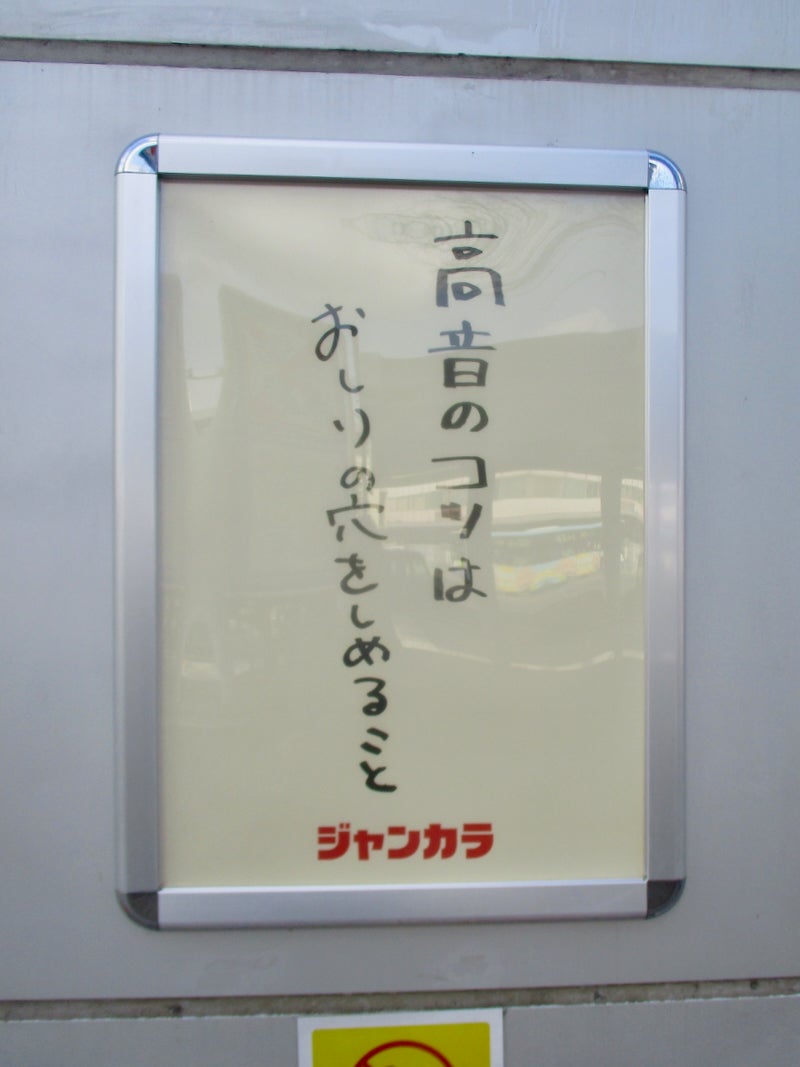 高音のコツは
おしりの穴をしめること
ジャンカラ